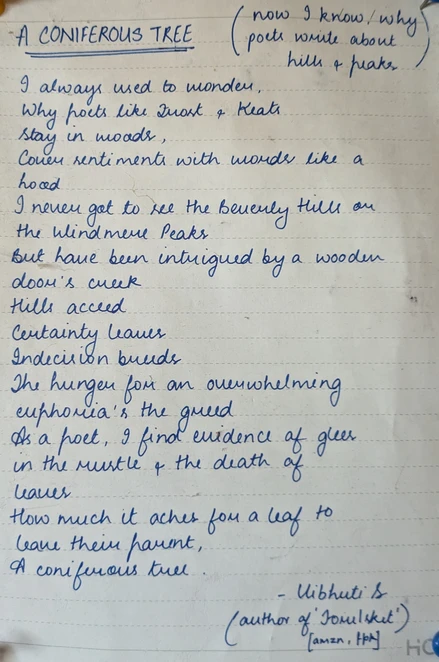 A CONIFEROUS TREE
(now I know, why
poets write about
hills & peaks)
I always used to wonder,
Why poets like Frost & Keats
stay in woods,
Cover sentiments with words like a
hood
I never got to see the Beverly Hills or
the Windmere Peaks
But have been intrigued by a wooden
door's creek
Hills acceed
Certainty leaves
Indecision breeds
The hunger for an overwhelming
euphoria's the greed
As a poet, I find evidence of glees
in the rustle & the death of
leaves
How much it aches for a leaf to
leave their parent,
A coniferous tree.
- Vibhuti S
(author of
[amzn,
HC